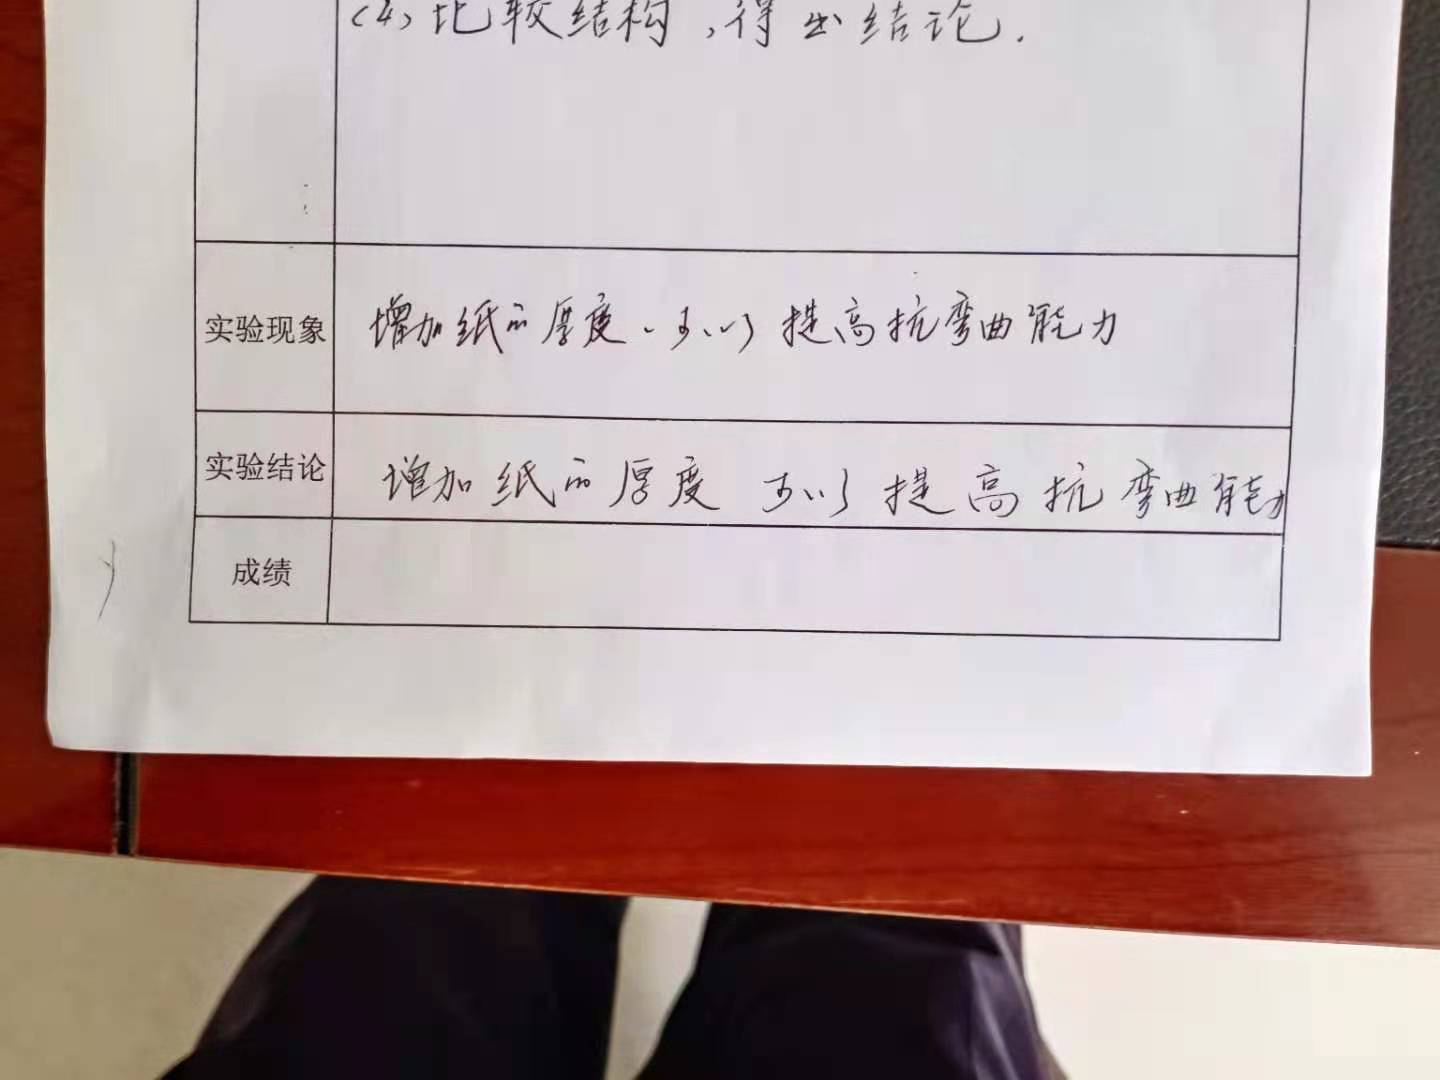 (4)比较结构,得出结论.
实验现象
增加纸的厚度、可以提高抗弯曲能力
实验结论
增加纸的厚度 可以提高抗弯曲能力
成绩